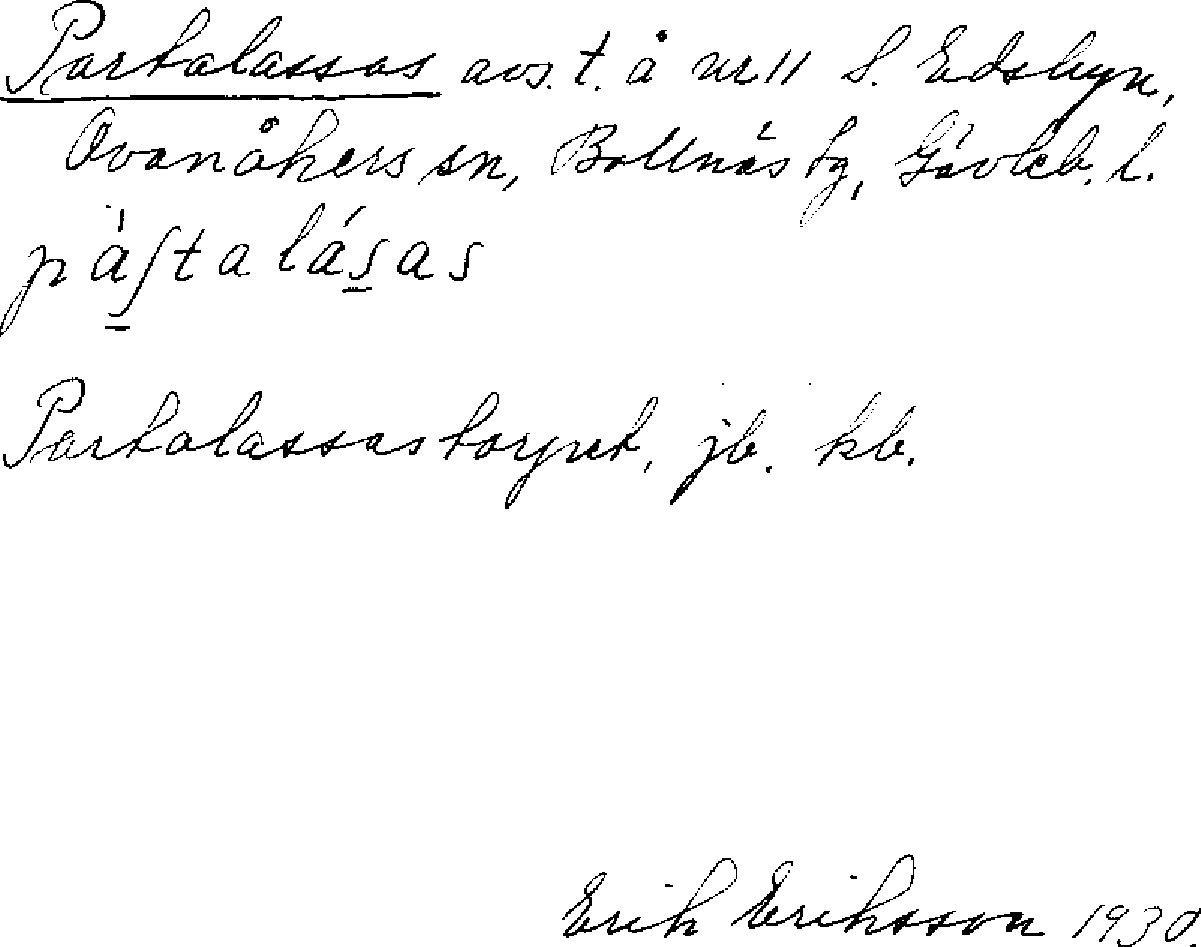 Partalassas avs. t. å nr 11 S. Edsbyn,
Ovanåkers sn, Bollnäs tg, Gävleb. l.
pàʃtalásas
Partalassastorpet, jb. kb.
Erik Eriksson 1930.